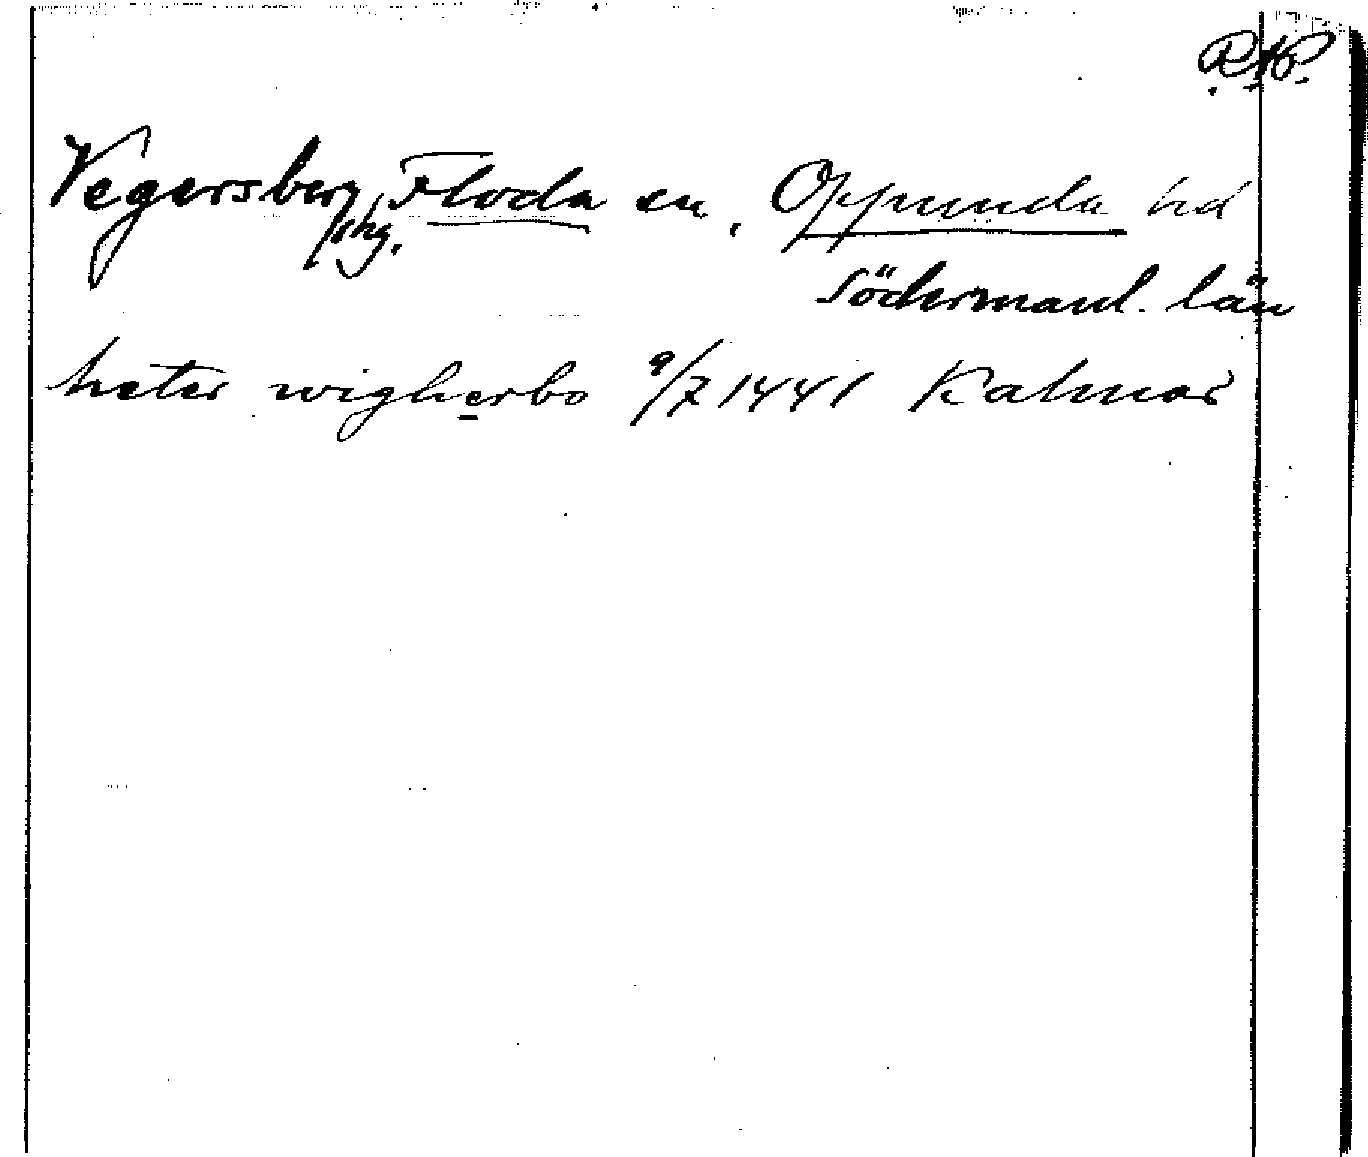 RAP.
Vegersberg, Floda sn, Oppunda hd
shg.
Södermanl. län
heter wigherbo 9/7 1441 Kalmar